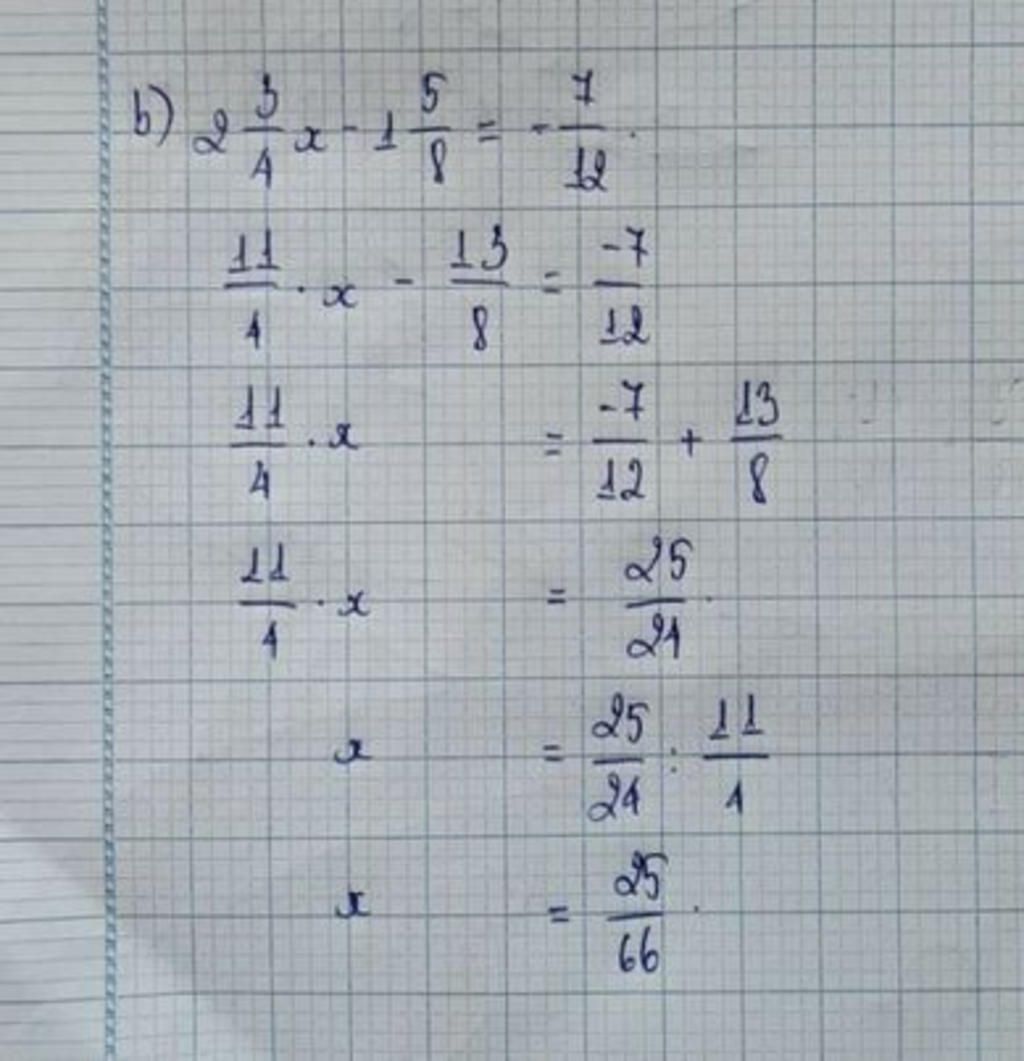 b) 2 3/4 x - 1 5/8 = - 7/12 .
11/4 . x - 13/8 = -7/12
11/4 . x = -7/12 + 13/8
11/4 . x = 25/24 .
x = 25/24 : 11/4
x = 25/66 .